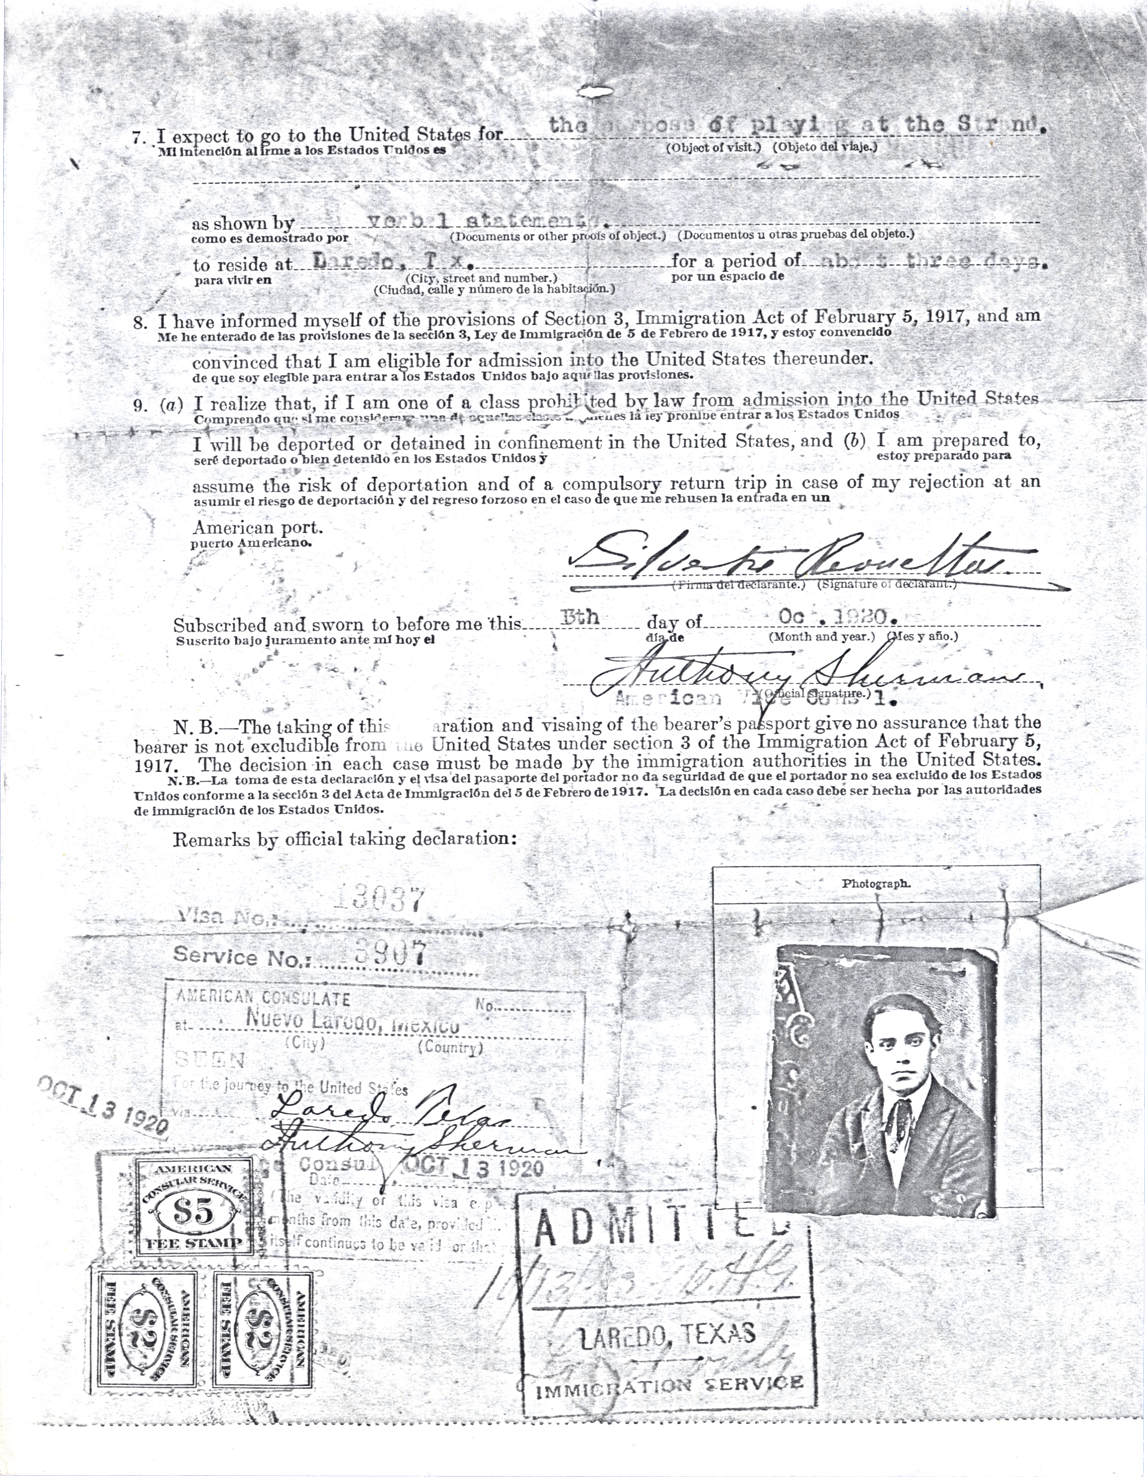 7. I expect to go to the United States for the purpose of playing at the Strand.
Mi intención al irme a los Estados Unidos es (Object of visit.) (Objeto del viaje.)
as shown by verbal statements.
como es demostrado por (Documents or other proofs of object.) (Documentos u otras pruebas del objeto.)
to reside at Laredo, Tex. for a period of about three days.
para vivir en (City, street and number.) por un espacio de
(Ciudad, calle y número de la habitación.)
8. I have informed myself of the provisions of Section 3, Immigration Act of February 5, 1917, and am
Me he enterado de las provisiones de la sección 3, Ley de Immigración de 5 de Febrero de 1917, y estoy convencido
convinced that I am eligible for admission into the United States thereunder.
de que soy elegible para entrar a los Estados Unidos bajo aquellas provisiones.
9. (a) I realize that, if I am one of a class prohibited by law from admission into the United States
Comprendo que si me considerara uno de aquellas clases a quienes la ley prohibe entrar a los Estados Unidos
I will be deported or detained in confinement in the United States, and (b) I am prepared to,
seré deportado o bien detenido en los Estados Unidos y estoy preparado para
assume the risk of deportation and of a compulsory return trip in case of my rejection at an
asumir el riesgo de deportación y del regreso forzoso en el caso de que me rehusen la entrada en un
American port.
puerto Americano.
Silvestre Revueltas
(Firma del declarante.) (Signature of declarant.)
Subscribed and sworn to before me this 13th day of Oct. 1920.
Suscrito bajo juramento ante mí hoy el día de (Month and year.) (Mes y año.)
Anthony Sherman
American Vice Consul. (Official Signature.)
N. B.—The taking of this aration and visaing of the bearer's passport give no assurance that the
bearer is not excludible from the United States under section 3 of the Immigration Act of February 5,
1917. The decision in each case must be made by the immigration authorities in the United States.
N. B.—La toma de esta declaración y el visa del pasaporte del portador no da seguridad de que el portador no sea excluido de los Estados
Unidos conforme a la sección 3 del Acta de Immigración del 5 de Febrero de 1917. La decisión en cada caso debe ser hecha por las autoridades
de immigración de los Estados Unidos.
Remarks by official taking declaration:
Photograph.
Visa No.: 13037
Service No.: 3907
AMERICAN CONSULATE No.
at Nuevo Laredo, Mexico
(City) (Country)
SEEN
For the journey to the United States
via Laredo Texas
OCT 13 1920
Anthony Sherman
Consul
Date OCT 13 1920
(The validity of this visa exp
months from this date, provided
itself continues to be valid for that
AMERICAN
CONSULAR SERVICE
$5
FEE STAMP
AMERICAN
CONSULAR SERVICE
$2
FEE STAMP
AMERICAN
CONSULAR SERVICE
$2
FEE STAMP
ADMITTED
LAREDO, TEXAS
IMMIGRATION SERVICE